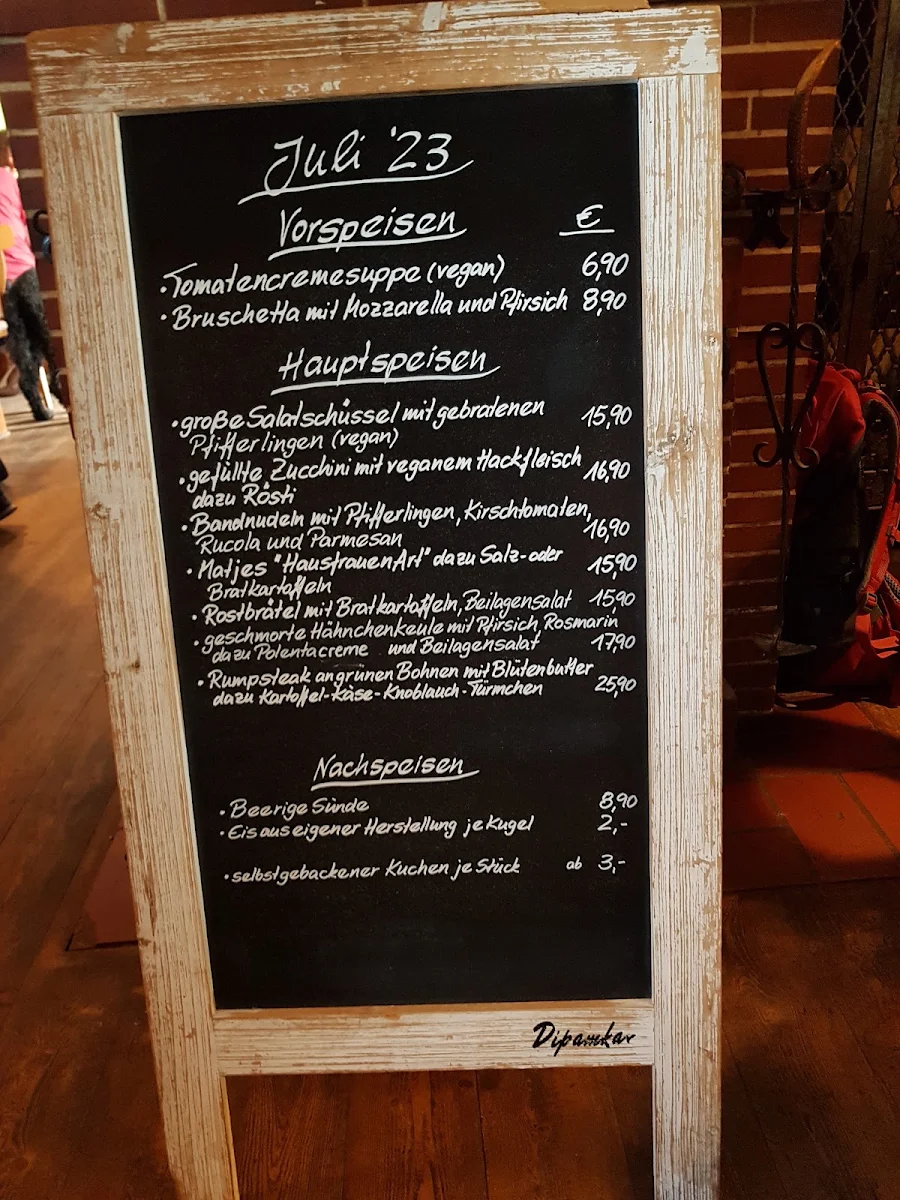 Juli '23
Vorspeisen €
• Tomatencremesuppe (vegan) 6,90
• Bruschetta mit Mozzarella und Pfirsich 8,90
Hauptspeisen
• große Salatschüssel mit gebratenen 15,90
Pfifferlingen (vegan)
• gefüllte Zucchini mit veganem Hackfleisch 16,90
dazu Rösti
• Bandnudeln mit Pfifferlingen, Kirschtomaten,
Rucola und Parmesan 16,90
• Matjes "Hausfrauen Art" dazu Salz- oder 15,90
Bratkartoffeln
• Rostbrätel mit Bratkartoffeln, Beilagensalat 15,90
• geschmorte Hähnchenkeule mit Pfirsich, Rosmarin
dazu Polentacreme und Beilagensalat 17,90
• Rumpsteak an grünen Bohnen mit Blütenbutter
dazu Kartoffel-Käse-Knoblauch-Türmchen 25,90
Nachspeisen
• Beerige Sünde 8,90
• Eis aus eigener Herstellung je Kugel 2,-
• selbstgebackener Kuchen je Stück ab 3,-
Dipamkar